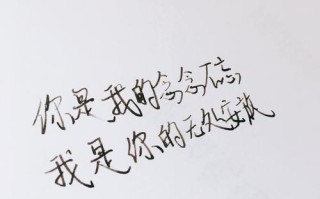 你是我的念念不忘
我是你的无处安放